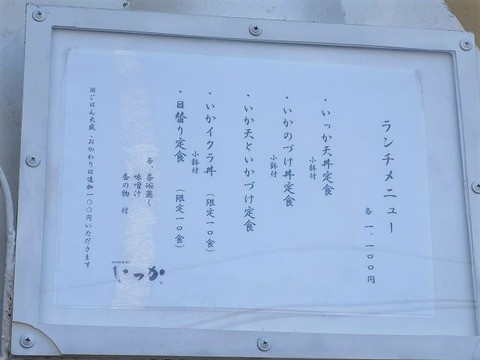 ランチメニュー
各 一、一〇〇円
・いっか天丼定食
小鉢付
・いかのづけ丼定食
小鉢付
・いか天といかづけ定食
・いかイクラ丼 (限定一〇食)
小鉢付
・日替り定食 (限定一〇食)
各、茶碗蒸し
味噌汁
香の物 付
※ごはん大盛、おかわりは追加一〇〇円いただきます
いっか